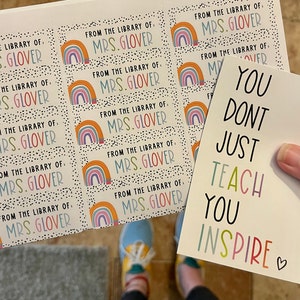 FROM THE LIBRARY OF:
MRS. GLOVER
FROM THE LIBRARY OF:
MRS. GLOVER
FROM THE LIBRARY OF:
MRS. GLOVER
FROM THE LIBRARY OF:
MRS. GLOVER
FROM THE LIBRARY OF:
MRS. GLOVER
FROM THE LIBRARY OF:
MRS. GLOVER
FROM THE LIBRARY OF:
MRS. GLOVER
FROM THE LIBRARY OF:
MRS. GLOVER
FROM THE LIBRARY OF:
MRS. GLOVER
FROM THE LIBRARY OF:
MRS. GLOVER
YOU
DONT
JUST
TEACH
YOU
INSPIRE